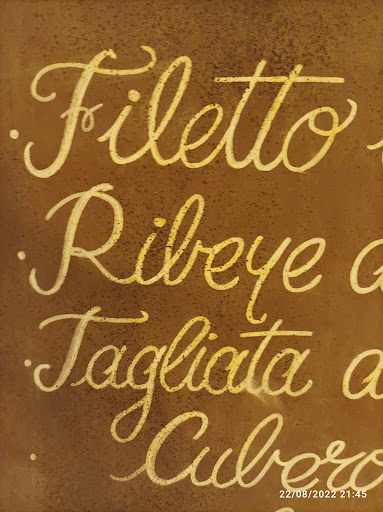 · Filetto
· Ribeye
· Tagliata
· Cubero
22/08/2022 21:45